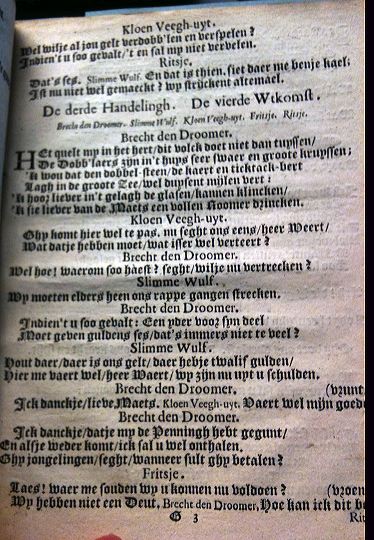 Kloen Veegh-uyt.
Wel wilje al jou gelt verdobb'len en verspelen?
Indien't u soo gevalt/'t en sal my niet vervelen.
Ritsje.
Dat's ses. Slimme Wulf. En dat is thien, siet daer me benje kael;
Ist nu niet wel gemaeckt? wy strijckent altemael.
De derde Handelingh. De vierde Wtkomst.
Brecht den Droomer. Slimme Wulf. Kloen Veegh-uyt. Fritsje. Ritsje.
Brecht den Droomer.
HEt quelt my in het hert/dit volck doet niet dan tuyssen/
De Dobb'laers zijn in 't huys seer swaer en groote kruyssen;
'k wou dat den dobbel-steen/de kaert en ticktack-bert
Lagh in de groote Zee/wel duysent mijlen vert;
'k hoor liever in't gelagh de glasen/kannen klincken/
'k sie liever van de Maets een vollen Roomer drincken.
Kloen Veegh-uyt.
Ghy komt hier wel te pas, nu seght ons eens/heer Weert/
Wat datje hebben moet/wat isser wel verteert?
Brecht den Droomer.
Wel hoe! waerom soo haest? seght/wilje nu vertrecken?
Slimme Wulf.
Wy moeten elders heen ons rappe gangen strecken.
Brecht den Droomer.
Indien't u soo gevalt: Een yder voor syn deel
Moet geven guldens ses/dat's immers niet te veel?
Slimme Wulf.
Hout daer/daer is ons gelt/daer hebje twalif gulden/
Hier me vaert wel/heer Waert/wy zijn nu uyt u schulden.
Brecht den Droomer. (vrunt
Ick danckje/lieve Maets. Kloen Veegh-uyt. Vaert wel mijn goede
Brecht den Droomer.
Ick danckje/datje my de Penningh hebt gegunt/
En alsje weder komt/ick sal u wel onthalen.
Ghy jongelingen/seght/wanneer sult ghy betalen?
Fritsje.
Laes! waer me souden wy u konnen nu voldoen? (vroen
Wy hebben niet een Deut. Brecht den Droomer. Hoe kan ick dit be
G 3 Rit